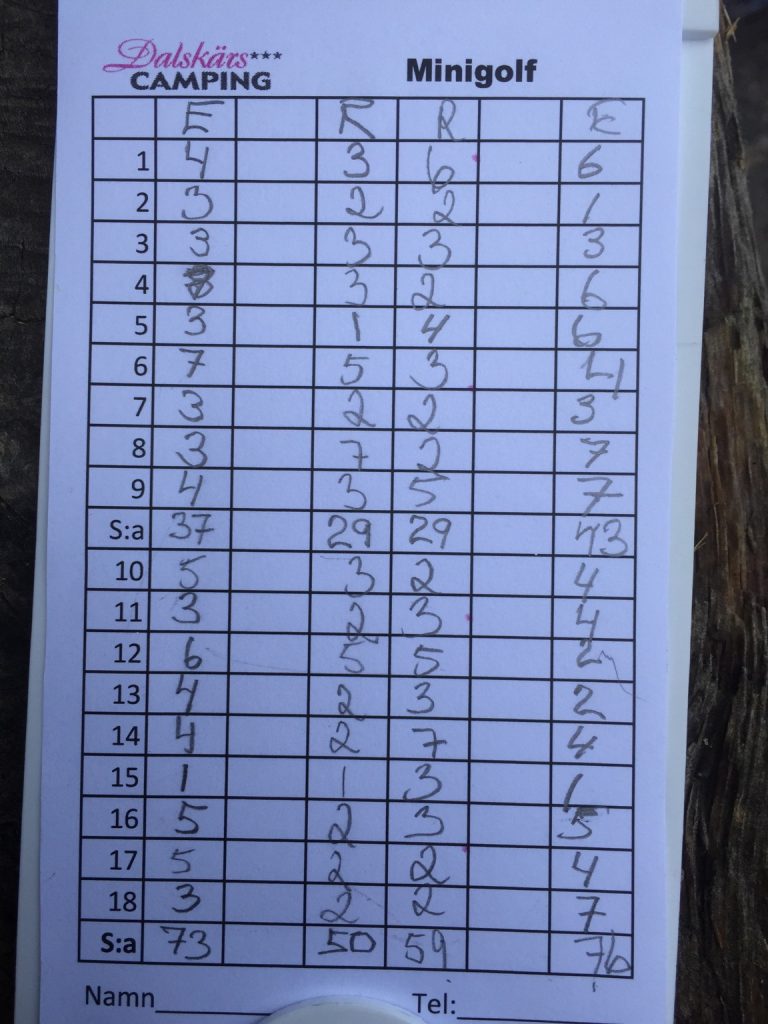 Dalskärs***
CAMPING
Minigolf
E R E
1 4 3 6 6
2 3 2 2 1
3 3 3 3 3
4 3 2 6
5 3 1 4 6
6 7 5 3 4
7 3 2 2 3
8 3 7 2 7
9 4 3 5 7
S:a 37 29 29 43
10 5 3 2 4
11 3 2 3 4
12 6 5 5 2
13 4 2 3 2
14 4 2 7 4
15 1 1 3 1
16 5 2 3 5
17 5 2 2 4
18 3 2 2 7
S:a 73 50 59 76
Namn
Tel: